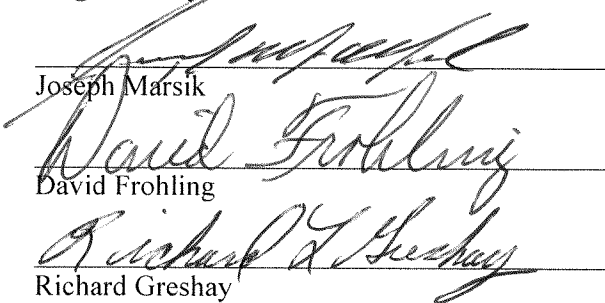 Joseph Marsik
David Frohling
David Frohling
Richard L Greshay
Richard Greshay